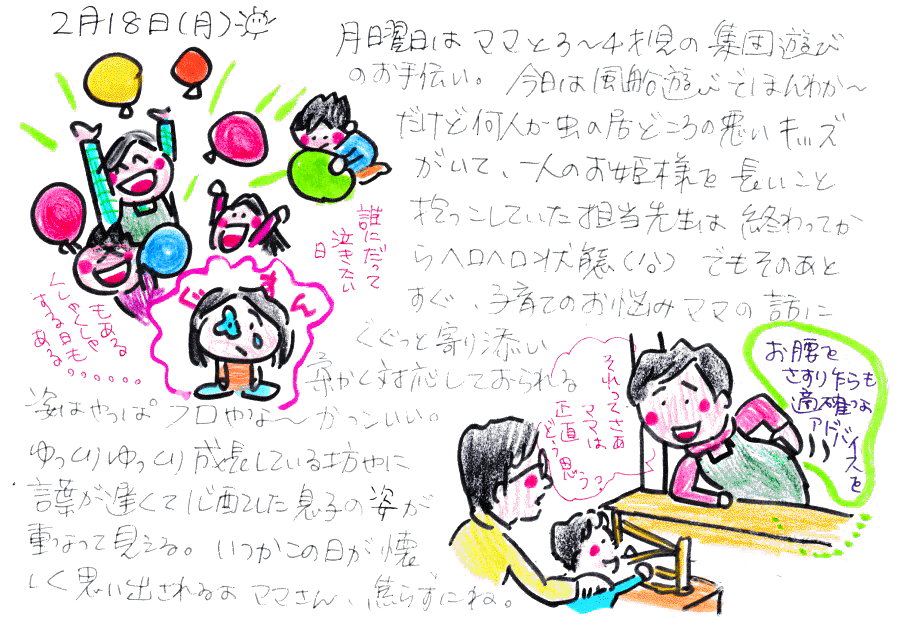 2月18日(月)
月曜日はママと3〜4才児の集団遊び
のお手伝い。今日は風船遊びでほんわか〜
だけど何人か虫の居どころの悪いキッズ
がいて、一人のお姫様を長いこと
抱っこしていた担当先生は終わってか
らヘロヘロ状態(^o^;) でもそのあと
すぐ、子育てのお悩みママの話に
ぐぐっと寄り添い
柔かく対応しておられる
姿はやっぱプロやな〜かっこいい。
ゆっくりゆっくり成長している坊やに
言葉が遅くて心配した息子の姿が
重なって見える。いつかこの日が懐
しく思い出されるよママさん、焦らずにね。
誰にだって
泣きたい
日
もある
くしゃくしゃ
する日も
ある......
どすん
それってさあ
ママは
正直
どう思う?
お腰を
さすり乍らも
適確な
アドバイスを